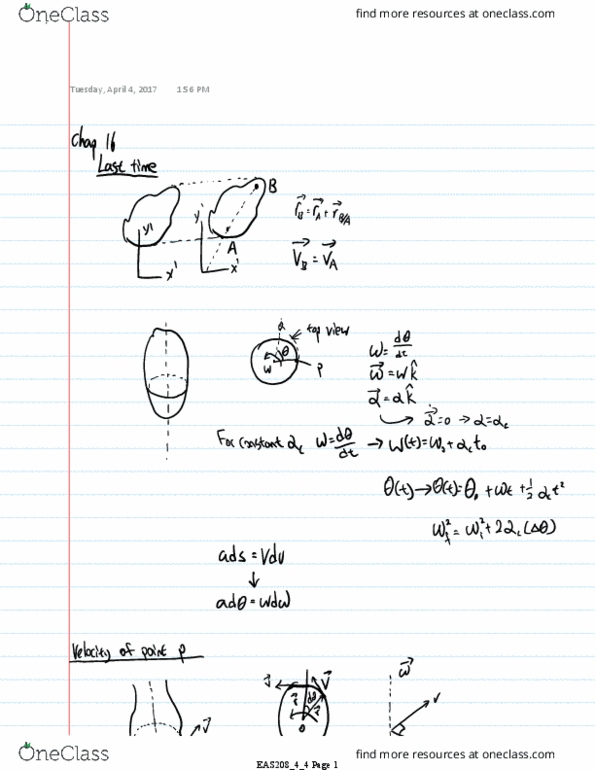 OneClass
find more resources at oneclass.com
Tuesday, April 4, 2017 1:56 PM
Chap 16
Last time
B
y'
y'
A
x'
x'
r⃗_B = r⃗_A + r⃗_B/A
V⃗_B = V⃗_A
α
top view
θ
w
P
ω = dθ/dt
ω⃗ = ωk̂
α⃗ = αk̂
α⃗ = 0 → α = α_c
For constant α_c ω = dθ/dt → ω(t) = ω_0 + α_c t_0
θ(t) → θ(t) = θ_0 + ωt + 1/2 α_c t²
ω_f² = ω_i² + 2α_c (Δθ)
ads = Vdv
↓
αdθ = ωdω
Velocity of point P
V⃗
dθ
r⃗
r⃗
O
ω⃗
OneClass
find more resources at oneclass.com
EAS208_4_4 Page 1